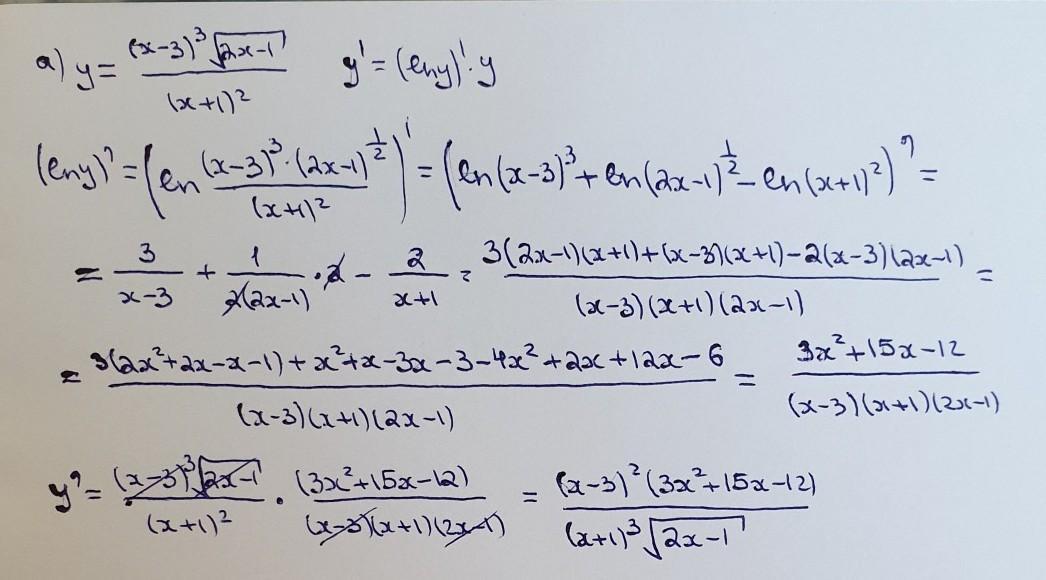 а) y = (x-3)³√(2x-1) / (x+1)² y' = (ln y)'·y
(ln y)' = (ln ((x-3)³·(2x-1)^(1/2)) / (x+1)²)' = (ln(x-3)³ + ln(2x-1)^(1/2) - ln(x+1)²)' =
= 3/(x-3) + 1/(2(2x-1)) ·2 - 2/(x+1) = (3(2x-1)(x+1)+(x-3)(x+1)-2(x-3)(2x-1)) / ((x-3)(x+1)(2x-1)) =
= (3(2x²+2x-x-1)+x²+x-3x-3-4x²+2x+12x-6) / ((x-3)(x+1)(2x-1)) = (3x²+15x-12) / ((x-3)(x+1)(2x-1))
y' = (x-3)³√(2x-1) / (x+1)² · (3x²+15x-12) / ((x-3)(x+1)(2x-1)) = (x-3)²(3x²+15x-12) / ((x+1)³√(2x-1))